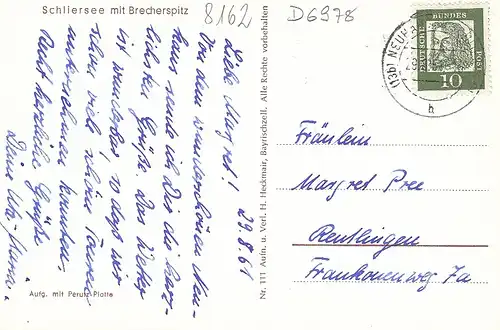 Schliersee mit Brecherspitz
8162
D6978
29.8.61
Liebe Margret!
Von dem wunderschönen Neu-
haus sende ich Dir die herz-
lichsten Grüße. Das Wetter
ist wunderbar, so daß wir
schon viele, schöne Touren
unternehmen konnten.
Recht herzliche Grüße
Deine
Aufg. mit Perutz-Platte
Nr. 111 Aufn. u. Verl. H. Heckmair, Bayrischzell. Alle Rechte vorbehalten
(13b) NEUHA
b
DEUTSCHE
BUNDES
POST
10
Fräulein
Margret Pree
Reutlingen
Frankonenweg 7a